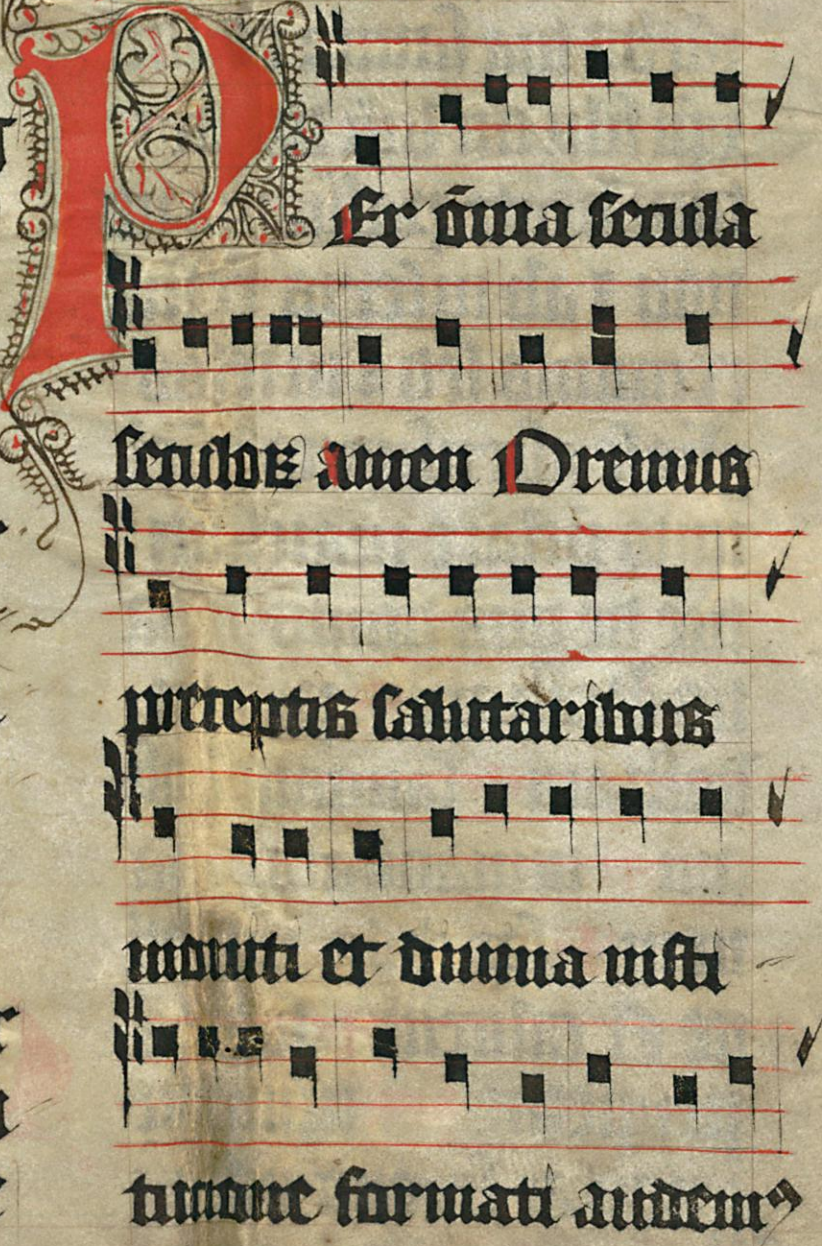 PEr ōmia secula
seculoꝝ amen Oremus
preceptis salutaribus
moniti et diuina insti
tucione formati audemꝰ